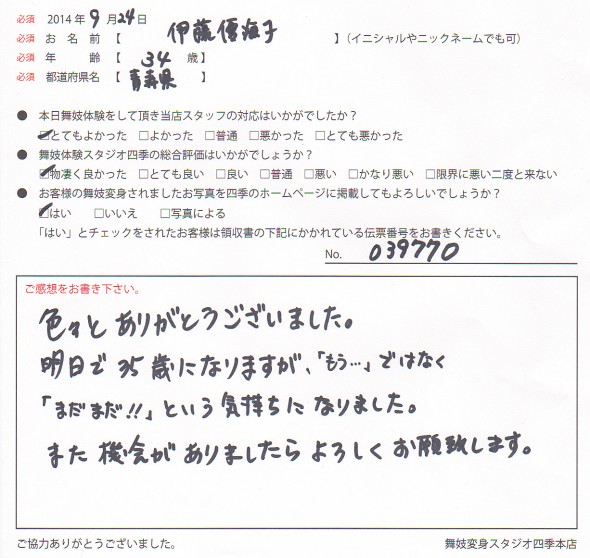 必須 2014年 9 月 24 日
必須 お 名 前 【 伊藤優海子 】(イニシャルやニックネームでも可)
必須 年 齢 【 34 歳】
必須 都道府県名 【 青森県 】
● 本日舞妓体験をして頂き当店スタッフの対応はいかがでしたか?
□とてもよかった □よかった □普通 □悪かった □とても悪かった
● 舞妓体験スタジオ四季の総合評価はいかがでしょうか?
□物凄く良かった □とても良い □良い □普通 □悪い □かなり悪い □限界に悪い二度と来ない
● お客様の舞妓変身されましたお写真を四季のホームページに掲載してもよろしいでしょうか?
□はい □いいえ □写真による
「はい」とチェックをされたお客様は領収書の下記にかかれている伝票番号をお書きください。
No. 039770
ご感想をお書き下さい。
色々とありがとうございました。
明日で35歳になりますが、「もう…」ではなく
「まだまだ!!」という気持ちになりました。
また機会がありましたらよろしくお願致します。
ご協力ありがとうございました。
舞妓変身スタジオ四季本店